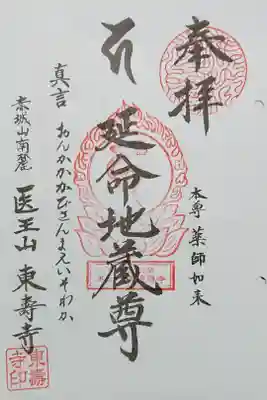 奉拝
本尊 薬師如来
延命地蔵尊
真言 おんかかかびさんまえいそわか
赤城山南麓
医王山 東壽寺
東壽寺印